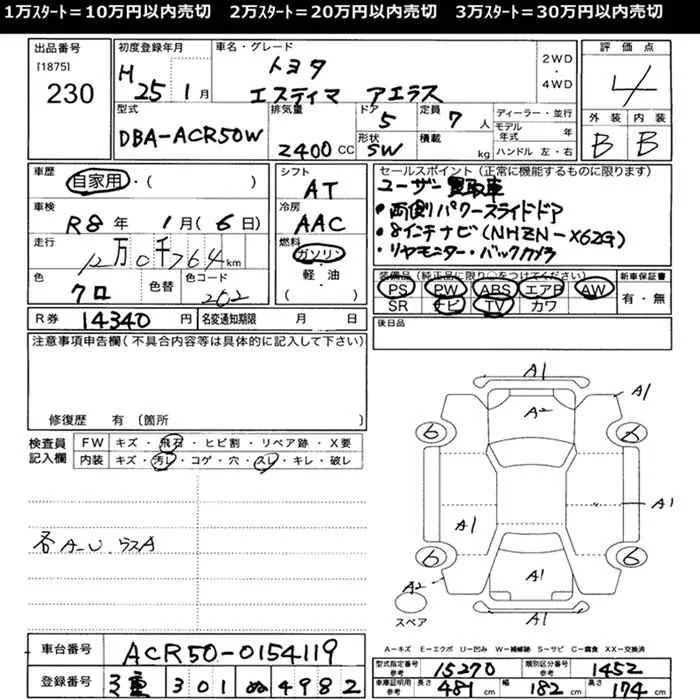 1万ｽﾀｰﾄ＝10万円以内売切 2万ｽﾀｰﾄ＝20万円以内売切 3万ｽﾀｰﾄ＝30万円以内売切
出品番号
[1875]
230
初度登録年月
H25 1月
車名・グレード
トヨタ
エスティマ アエラス
2WD
・
4WD
評価点
4
型式
DBA-ACR50W
排気量
2400cc
ドア
5
形状
SW
定員
7人
積載
kg
ディーラー・並行
モデル年式 年
ハンドル 左・右
外装 内装
B B
車歴
自家用・( )
車検
R8年 1月(6日)
走行
12万0千764km
色
クロ
色替
色コード
202
R券 14340円
名変通知期限 月 日
シフト
AT
冷房
AAC
燃料
ガソリン
・
軽・油
( )
セールスポイント(正常に機能するものに限ります)
ユーザー買取車
・両側パワースライドドア
・8インチナビ(NHZN-X62G)
・リヤモニター・バックカメラ
装備品(純正品に限り○をつけてください)
新車保証書
PS PW ABS エアB AW
SR ナビ TV カワ
有・無
後日品
注意事項申告欄(不具合内容等は具体的に記入して下さい)
修復歴 有〔箇所 〕
検査員
記入欄
FW キズ・飛石・ヒビ割・リペア跡・X要
内装 キズ・汚レ・コゲ・穴・スレ・キレ・破レ
各A-U.ラスA
A1
A2
A1
6
6
A1
A1
6
6
A2
A1
A1
スペア
A=キズ E=エクボ U=凹み W=補修跡 S=サビ C=腐食 XX=交換済
車台番号 ACR50-0154119
登録番号 三重 301 ぬ 4982
型式指定番号
参考
15270
類別区分番号
参考
1452
車庫証明用
参考
長さ 481cm 幅 182cm 高さ 174cm